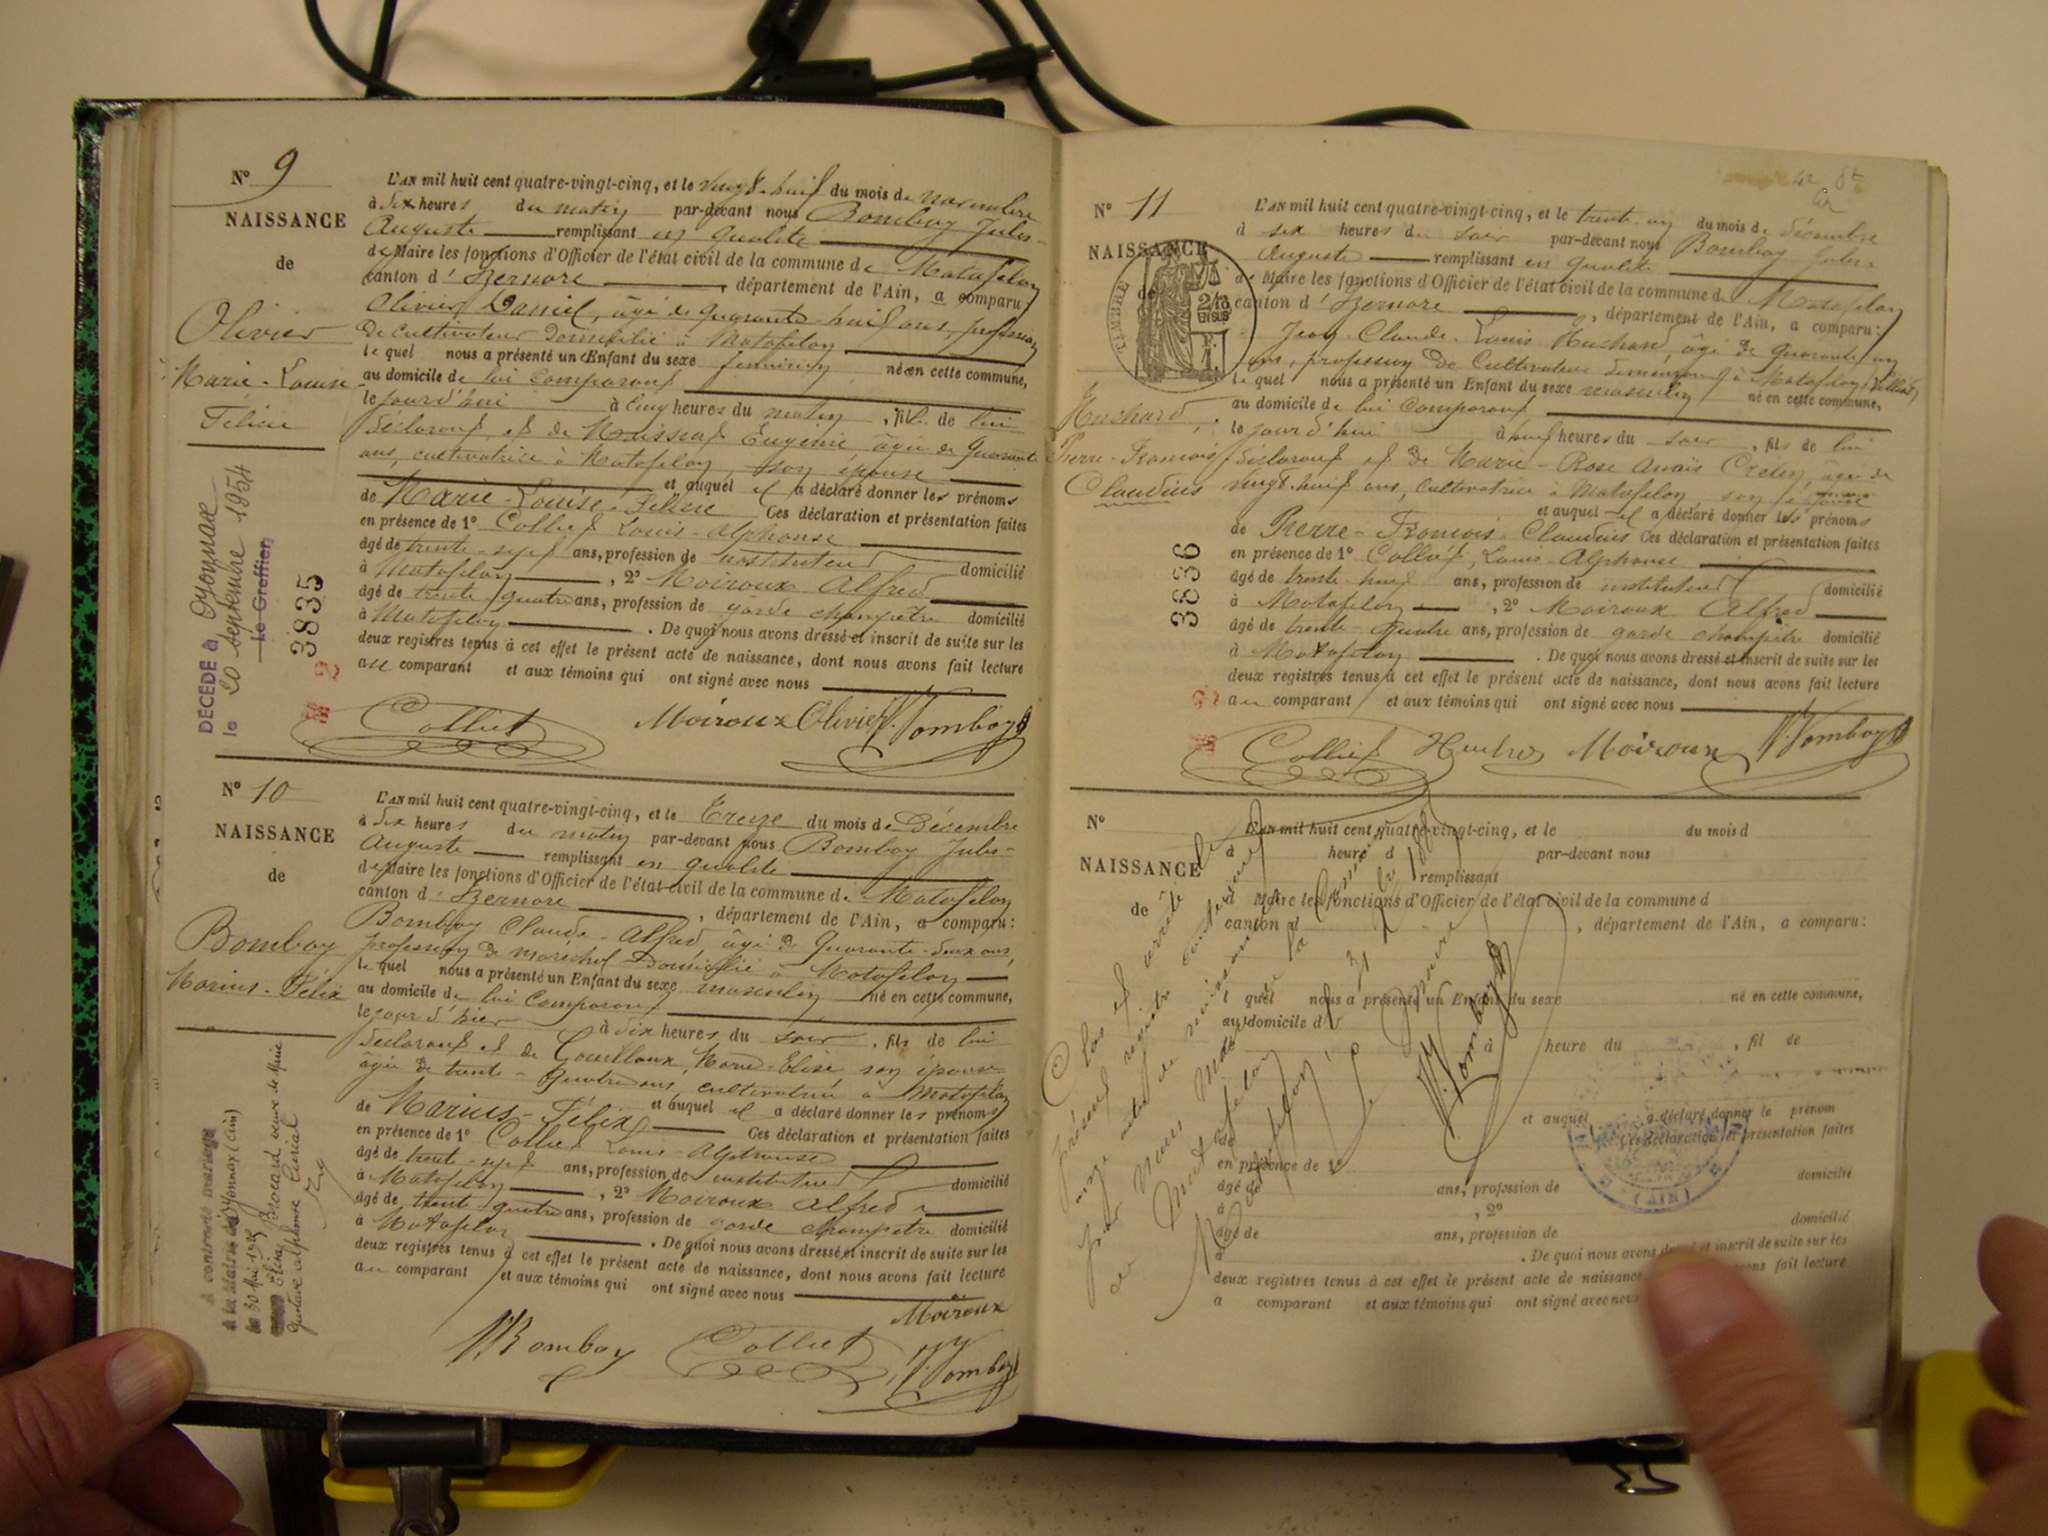 N° 9
NAISSANCE
de
Olivier
Marie-Louise
Félicie
DECEDE à Oyonnax
le 20 septembre 1954
Le Greffier,
3835
L'AN mil huit cent quatre-vingt-cinq, et le vingt-huit du mois de novembre
à dix heures du matin par-devant nous Bomboy Jules-
Auguste remplissant en qualité
de Maire les fonctions d'Officier de l'état civil de la commune de Matafelon
canton d'Izernore, département de l'Ain, a comparu:
Olivier Daniel, âgé de quarante-huit ans, profession
de cultivateur domicilié à Matafelon
lequel nous a présenté un Enfant du sexe féminin né en cette commune,
au domicile de lui comparant
le jour d'hui à cinq heures du matin, fil de lui
déclarant et de Maissiat Eugénie âgée de quarante
ans, cultivatrice à Matafelon, son épouse
et auquel il a déclaré donner les prénoms
de Marie-Louise-Félicie Ces déclaration et présentation faites
en présence de 1° Colliet Louis-Alphonse
âgé de trente-sept ans, profession de instituteur domicilié
à Matafelon, 2° Moiroux Alfred
âgé de trente-quatre ans, profession de garde champêtre domicilié
à Matafelon. De quoi nous avons dressé et inscrit de suite sur les
deux registres tenus à cet effet le présent acte de naissance, dont nous avons fait lecture
au comparant et aux témoins qui ont signé avec nous
Colliet Moiroux Olivier Bomboy
N° 10
NAISSANCE
de
Bomboy
Marius-Félix
A contracté mariage
à la mairie de Oyonnax (Ain)
le 30 Mai 19
Brocard veuve de
Gustave Alphonse Curial
L'AN mil huit cent quatre-vingt-cinq, et le treize du mois de Décembre
à dix heures du matin par-devant nous Bomboy Jules-
Auguste remplissant en qualité
de Maire les fonctions d'Officier de l'état civil de la commune de Matafelon
canton d'Izernore, département de l'Ain, a comparu:
Bomboy Claude-Alfred, âgé de quarante-deux ans,
profession de maréchal domicilié à Matafelon
lequel nous a présenté un Enfant du sexe masculin né en cette commune,
au domicile de lui comparant
le jour d'hier à dix heures du soir, fils de lui
déclarant et de Gouilloux, Marie-Elise son épouse
âgée de trente-quatre ans, cultivatrice à Matafelon
et auquel il a déclaré donner les prénoms
de Marius-Félix Ces déclaration et présentation faites
en présence de 1° Colliet Louis-Alphonse
âgé de trente-sept ans, profession de instituteur domicilié
à Matafelon, 2° Moiroux Alfred
âgé de trente-quatre ans, profession de garde champêtre domicilié
à Matafelon. De quoi nous avons dressé et inscrit de suite sur les
deux registres tenus à cet effet le présent acte de naissance, dont nous avons fait lecture
au comparant et aux témoins qui ont signé avec nous
Moiroux
Bomboy Colliet Bomboy
N° 11
NAISSANCE
de
TIMBRE
2/10
EN SUS
Huchard,
Pierre-François
Claudius
3836
L'AN mil huit cent quatre-vingt-cinq, et le trente-un du mois de décembre
à six heures du soir par-devant nous Bomboy Jules-
Auguste remplissant en qualité
de Maire les fonctions d'Officier de l'état civil de la commune de Matafelon
canton d'Izernore, département de l'Ain, a comparu:
Jean-Claude-Louis Huchard, âgé de quarante un
ans, profession de cultivateur demeurant à Matafelon
lequel nous a présenté un Enfant du sexe masculin né en cette commune,
au domicile de lui comparant
le jour d'hui à huit heures du soir, fils de lui
déclarant et de Marie-Rose Anaïs Cretin, âgée de
vingt-huit ans, cultivatrice à Matafelon, son épouse
et auquel il a déclaré donner les prénoms
de Pierre-François-Claudius Ces déclaration et présentation faites
en présence de 1° Colliet, Louis-Alphonse
âgé de trente-huit ans, profession de instituteur domicilié
à Matafelon, 2° Moiroux Alfred
âgé de trente-quatre ans, profession de garde champêtre domicilié
à Matafelon. De quoi nous avons dressé et inscrit de suite sur les
deux registres tenus à cet effet le présent acte de naissance, dont nous avons fait lecture
au comparant et aux témoins qui ont signé avec nous
Colliet Moiroux Bomboy
N°
NAISSANCE
de
L'AN mil huit cent quatre-vingt-cinq, et le du mois d
à heure d par-devant nous
remplissant
d Maire les fonctions d'Officier de l'état civil de la commune d
canton d, département de l'Ain, a comparu:
l quel nous a présenté un Enfant du sexe né en cette commune,
au domicile d
à heure du, fil de
et auquel a déclaré donner le prénom
de Ces déclaration et présentation faites
en présence de 1°
âgé de ans, profession de domicilié
à, 2°
âgé de ans, profession de domicilié
à. De quoi nous avons dressé et inscrit de suite sur les
deux registres tenus à cet effet le présent acte de naissance avons fait lecture
a comparant et aux témoins qui ont signé avec nous
Clos et arrêté le
présent registre contenant
onze actes de naissance
par nous Maire de la commune
de Matafelon le 31 Xbre 1885
Le Maire
Bomboy
(AIN)